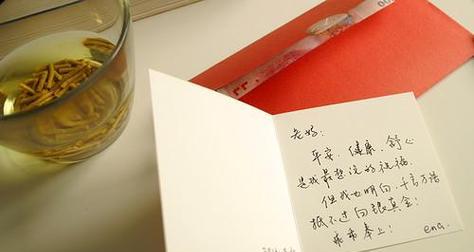 老妈:
平安、健康、舒心
是我最想说的祝福.
但我也明白,千言万语
抵不过白银真金:
奉上: ena.